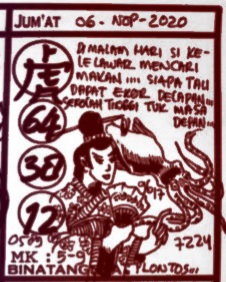 JUM'AT 06-NOP-2020
DMALAM HARI SI KE-
LELAWAR MENCARI
MAKAN .... SIAPA TAU
DAPAT EKOR DELAPAN...
SEKOLAH TINGGI TUK MASA
DEPAN...
虎
64
38
12
9617
7224
MK : 5-9
BINATANG LONTOS...